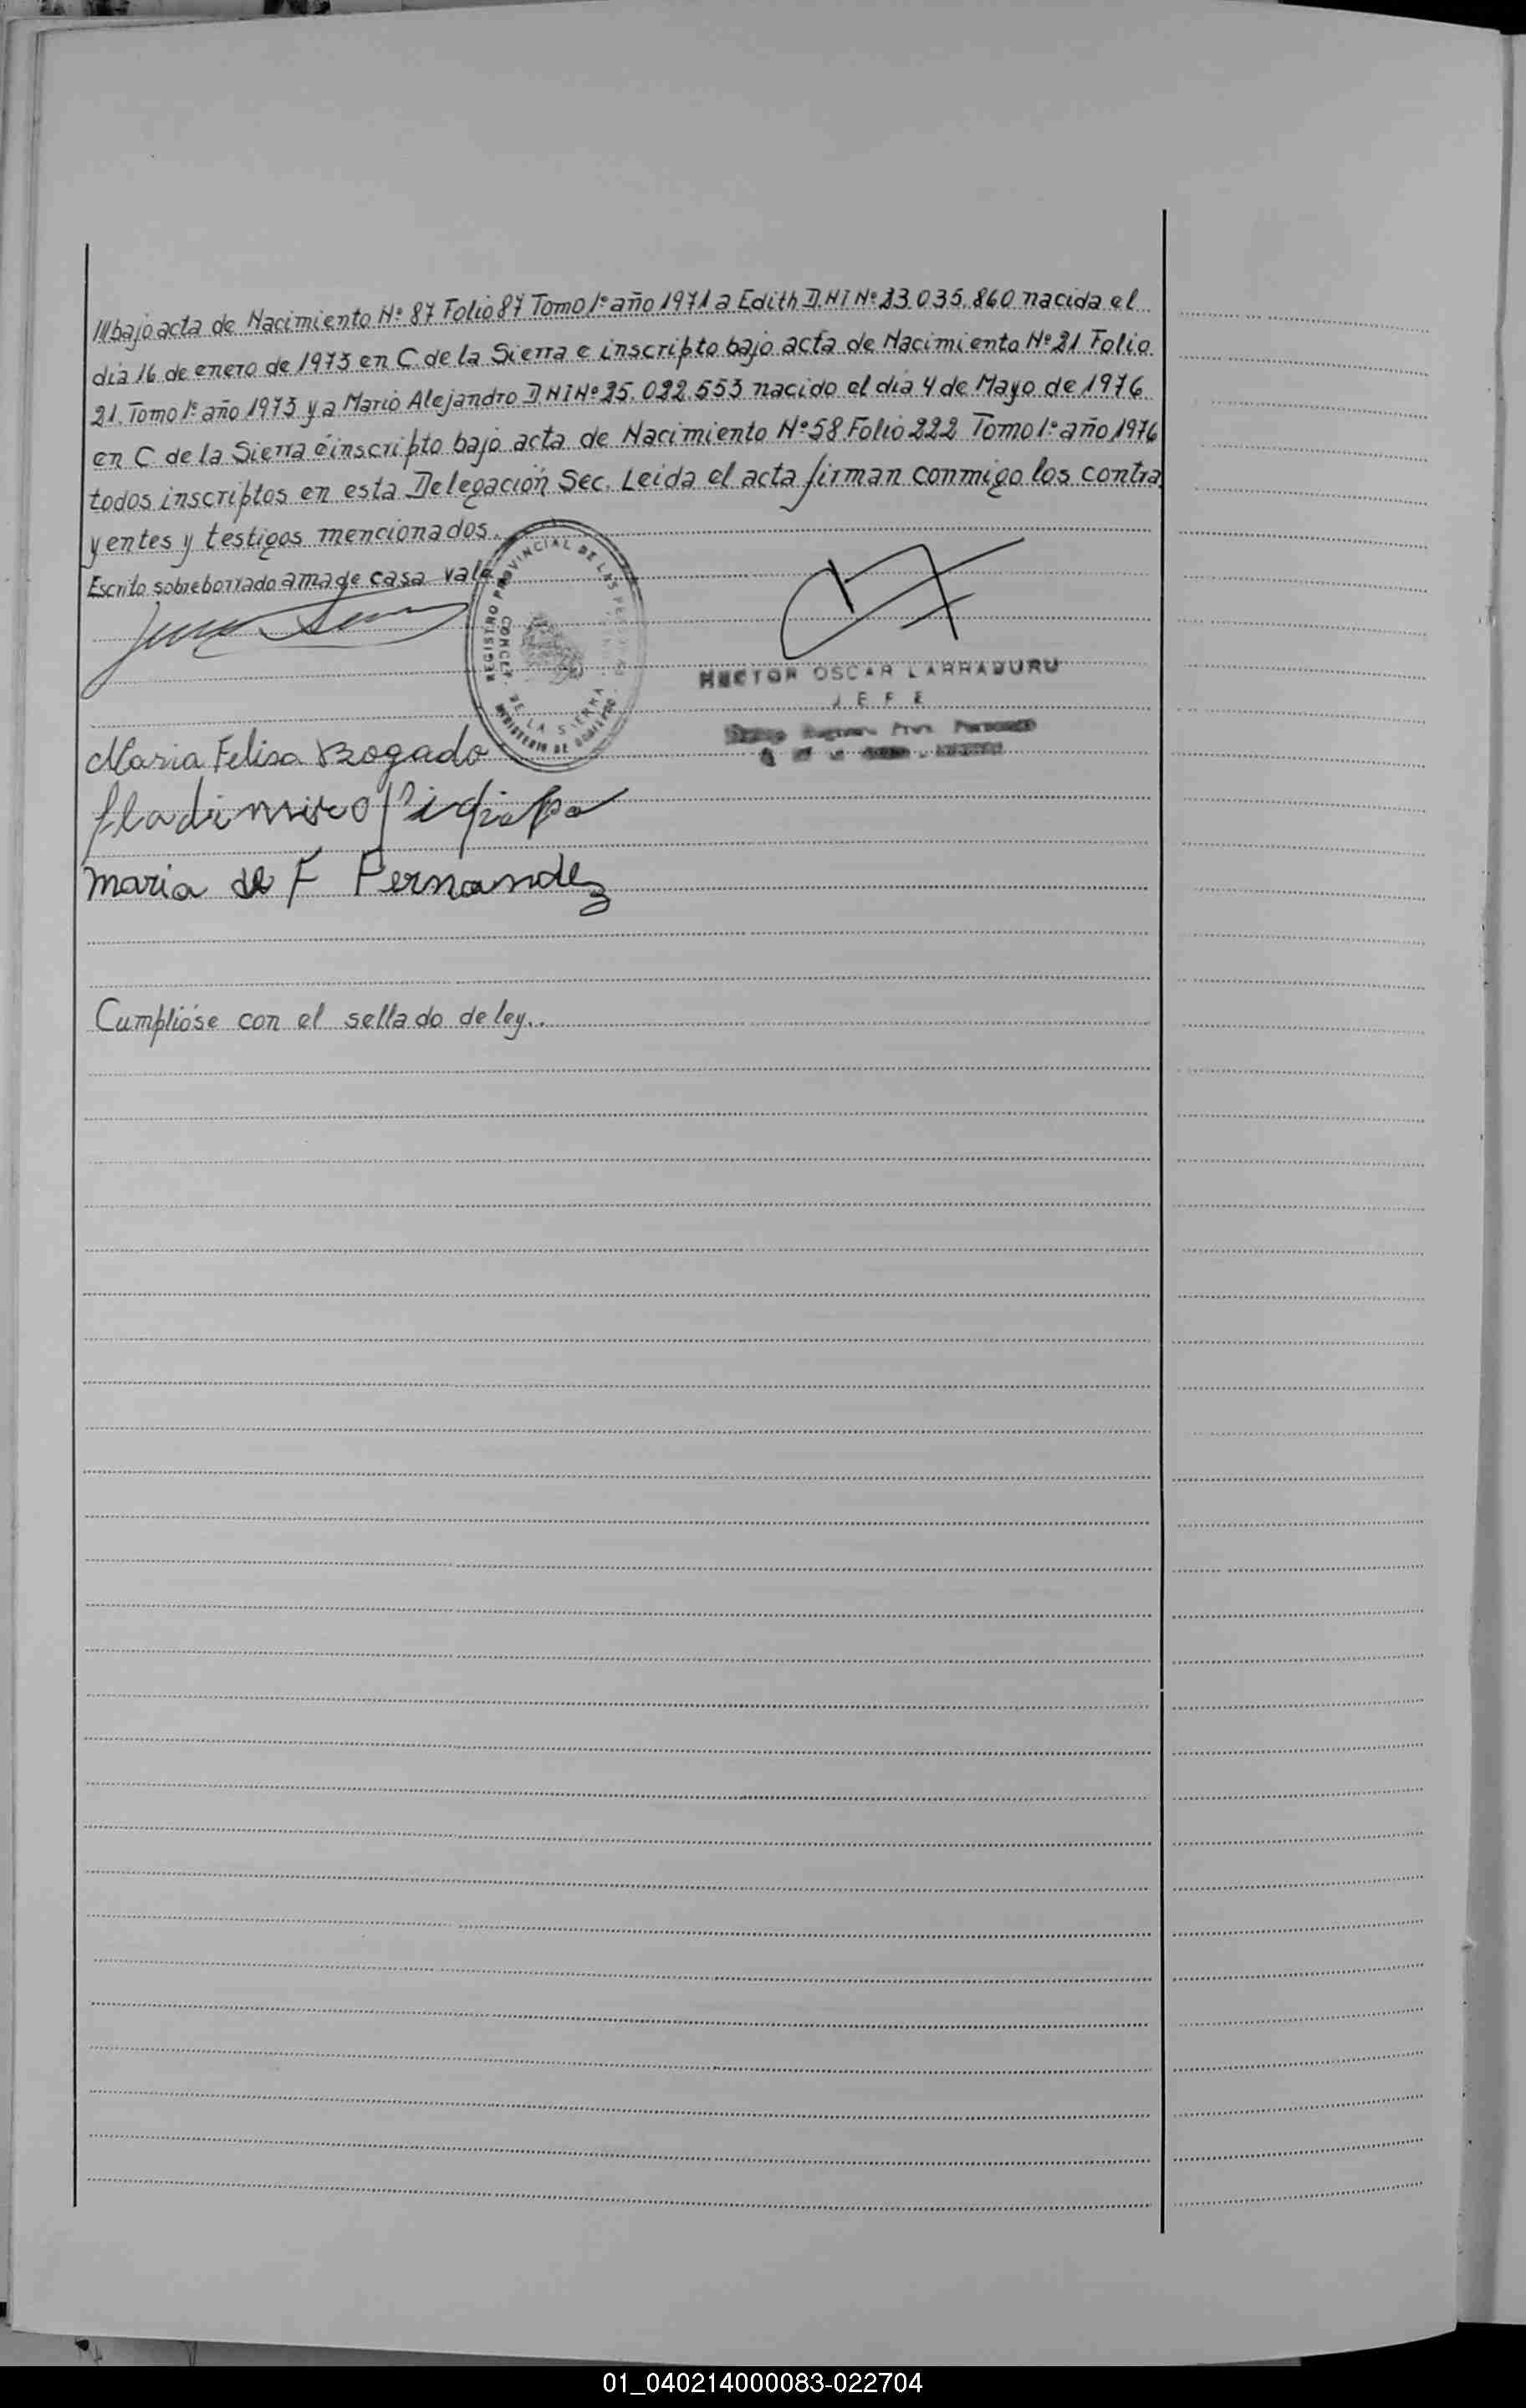 ///bajo acta de Nacimiento Nº 87 Folio 87 Tomo 1º año 1971 a Edith D.NI Nº 23.035.860 nacida el
dia 16 de enero de 1973 en C. de la Sierra e inscripto bajo acta de Nacimiento Nº 21 Folio
21. Tomo 1º año 1973 y a Mario Alejandro D.NI Nº 25.022.553 nacido el dia 4 de Mayo de 1976
en C de la Sierra é inscripto bajo acta de Nacimiento Nº 58 Folio 222 Tomo 1º año 1976
todos inscriptos en esta Delegación Sec. Leida el acta firman conmigo los contra
yentes y testigos mencionados.
Escrito sobreborrado ama de casa vale
REGISTRO PROVINCIAL DE LAS
CONCEP. DE LA SIERRA
MINISTERIO DE GOBIERNO
HECTOR OSCAR LARRABURU
JEFE
Maria Felisa Bogado
maria de F Fernandez
Cumplióse con el sellado de ley..
01_040214000083-022704